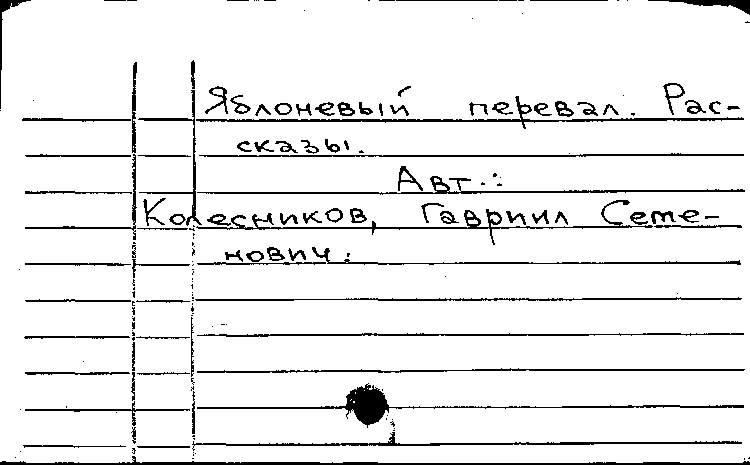 Яблоневый перевал. Рас-
сказы.
Авт.:
Колесников, Гавриил Семе-
нович.